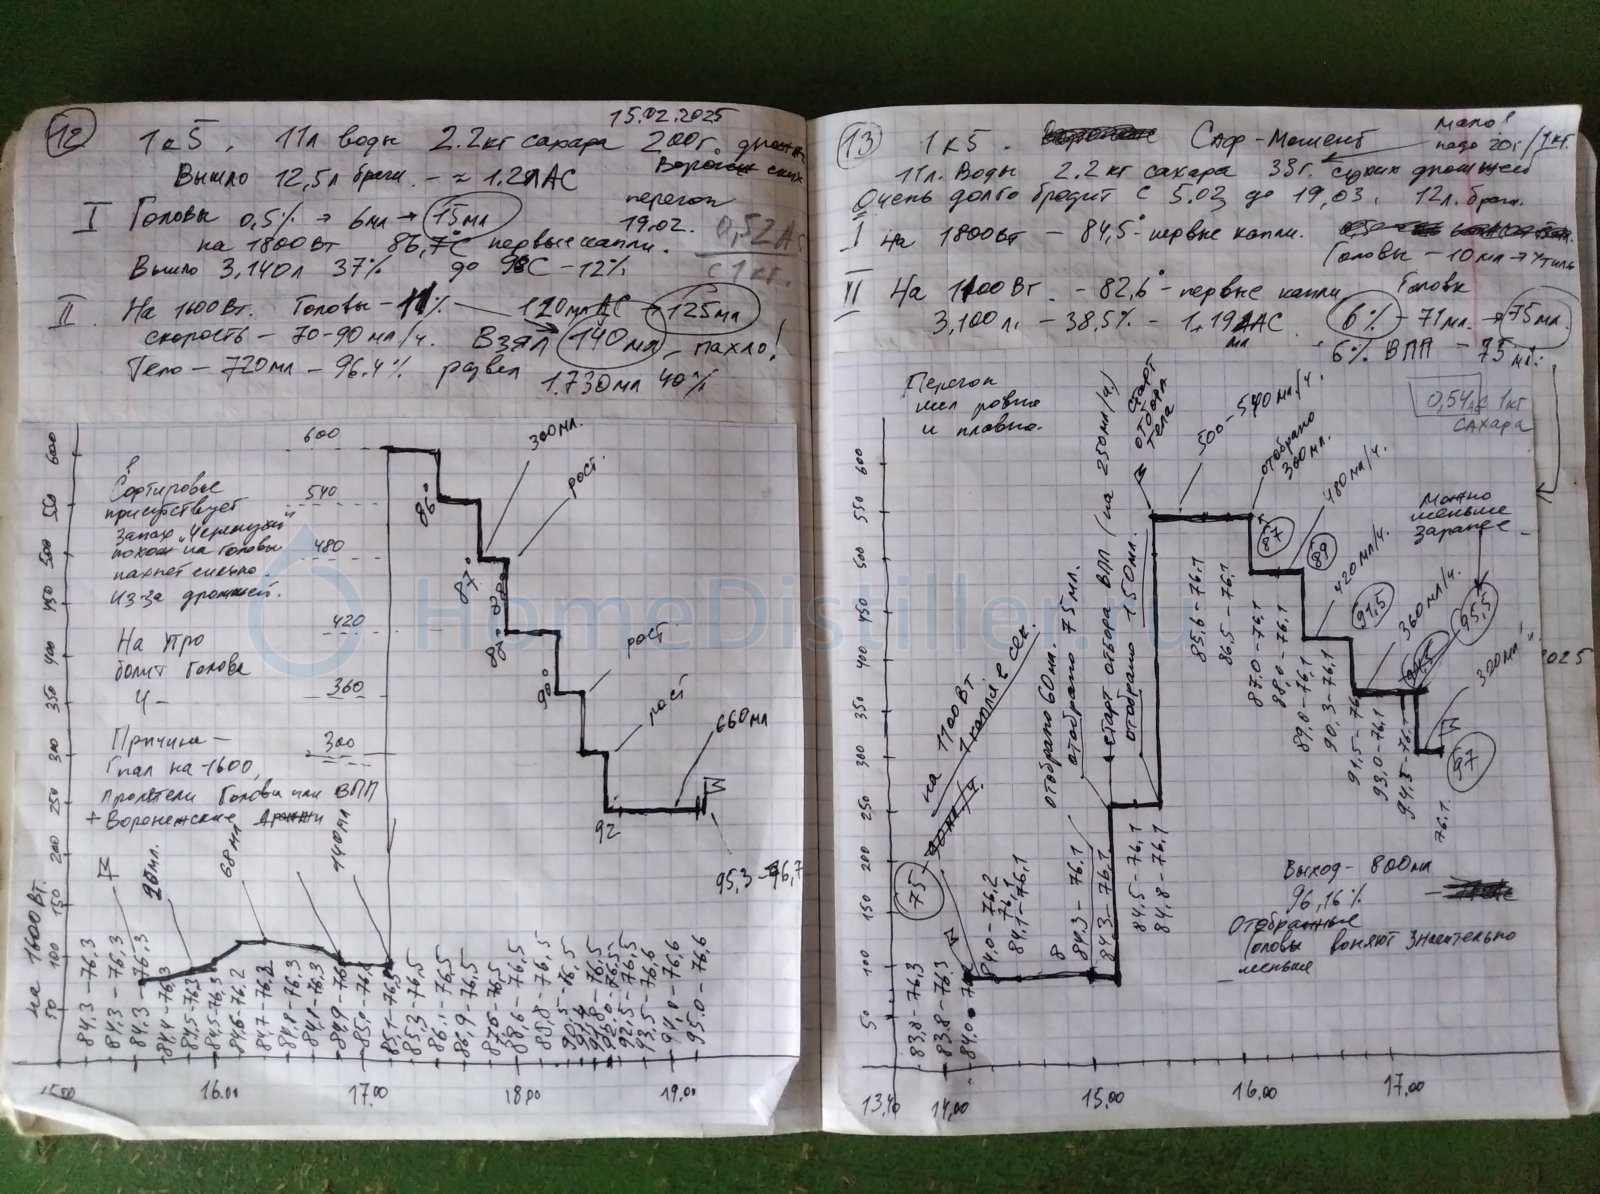 12
15.02.2025
1 к 5. 11л воды 2.2кг сахара 200г.
Вышло 12,5л браги. - ≈ 1.2л АС
I Головы 0,5% → 6мл → 15мл
перегон
19.02.
на 1800Вт 86,7°С первые капли.
Вышло 3,140л 37% до 98С - 12%
0,52АС
с 1 кг.
II. На 1600Вт. Головы - 11% 120млАС → 125мл
скорость - 70-90мл/ч. Взял 140мл, пахло!
Тело - 720мл - 96.4% развел 1.730мл 40%
Сортировке
присутствует
запах "черемухи"
похож на головы
пахнет сильно.
Из-за дрожжей.
На утро
болит голова
Ч -
Причина -
Гнал на 1600,
пролетели Голова или ВПП
+ Воронежские дрожжи
600
540
480
420
360
300
600
550
500
450
400
350
300
250
200
150
100
50
на 1600 Вт.
86°
87°
90°
92
300мл.
рост.
рост
рост
660мл
95,3-96,7
20мл.
68мл
140мл
84.3 - 76.3
84.3 - 76.3
84.3 - 76.3
84.4 - 76.3
84.5 - 76.3
84.5 - 76.3
84.6 - 76.2
84.7 - 76.3
84.8 - 76.3
84.9 - 76
85.3 - 76,5
86.1 - 76,5
86,9 - 76,5
88,6 - 76,5
92,5 - 76,5
93,5 - 76,6
94,0 - 76,6
95.0 - 76,6
16.00
17.00
18.00
19.00
13
1 к 5. Саф-Момент
мало!
надо 20г/1кг.
11л. Воды 2.2 кг сахара 33г. сухих дрожжей
Очень долго бродит с 5.02 до 19.03. 12л. браги.
I На 1800Вт - 84,5° первые капли.
Головы - 10мл → утиль
II На 1100Вт. - 82,6° - первые капли Головы
3,100л. - 38,5% - 1,19 АС 6% - 71мл. → 75мл.
6% ВПП - 75мл.
0,54АС 1кг
сахара
Перегон
шел ровно
и плавно.
600
550
500
450
400
350
300
250
200
150
100
50
на 1100 Вт
1 капля в сек.
75
отобрано 60мл.
отобрано 75 мл.
старт отбора ВПП (на 250мл/ч)
отобрано 150мл.
старт
отбора
тела
500-540мл/ч.
отобрано
360мл.
480мл/ч.
420мл/ч.
360мл/ч.
300мл
Можно
меньше
заранее
87
89
91,5
94,5
95,5
97
2025
83,8 - 76.3
83,8 - 76.3
84.0 - 76
84,0 - 76.2
84,1 - 76,1
8
84.3 - 76.1
84.3 - 76.1
84,5 - 76.1
84,8 - 76.1
85.6 - 76.1
86,5 - 76.1
87.0 - 76,1
88,0 - 76.1
89,0 - 76.1
90,3 - 76,1
91,5 - 76
93,0 - 76.1
94,5 - 76.1
76.1
Выход - 800мл
96,16%
Отобранные
головы воняют значительно
меньше
13,40
14,00
15.00
16.00
17.00
HomeDistiller.ru